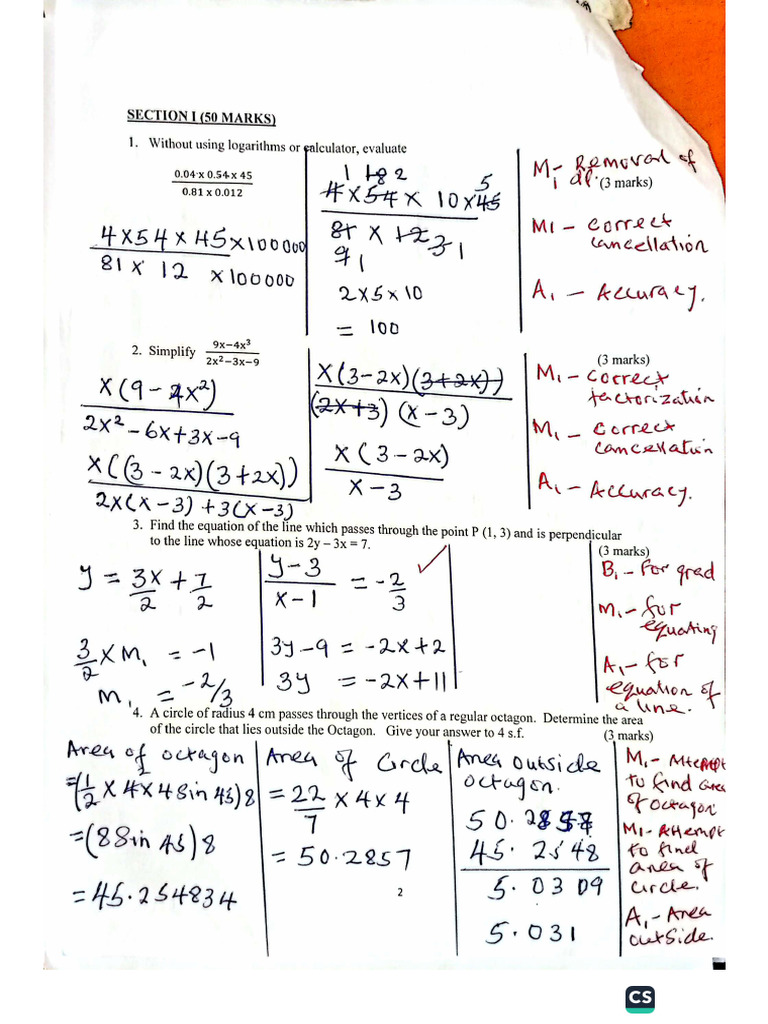 SECTION I (50 MARKS)
1. Without using logarithms or calculator, evaluate
0.04 x 0.54 x 45
0.81 x 0.012
(3 marks)
4 x 54 x 45 x 100000
81 x 12 x 100000
1 18 2 5
4 x 54 x 10 x 45
81 x 12 3 1
9 1
2 x 5 x 10
= 100
M1 - Removal of
dp.
M1 - correct
cancellation
A1 - Accuracy.
2. Simplify
9x−4x³
2x²−3x−9
(3 marks)
x(9 - 4x²)
2x² - 6x + 3x - 9
x((3 - 2x)(3 + 2x))
2x(x - 3) + 3(x - 3)
x(3 - 2x)(3 + 2x))
(2x + 3)(x - 3)
x(3 - 2x)
x - 3
M1 - correct
factorization
M1 - correct
cancellation
A1 - Accuracy.
3. Find the equation of the line which passes through the point P (1, 3) and is perpendicular
to the line whose equation is 2y – 3x = 7.
(3 marks)
y = 3x/2 + 7/2
3/2 x m1 = -1
m1 = -2/3
y - 3
x - 1
= -2/3 ✓
3y - 9 = -2x + 2
3y = -2x + 11
B1 - for grad
M1 - for
equating
A1 - for
equation of
a line.
4. A circle of radius 4 cm passes through the vertices of a regular octagon. Determine the area
of the circle that lies outside the Octagon. Give your answer to 4 s.f.
(3 marks)
Area of octagon
=(1/2 x 4 x 4 sin 45)8
=(8 sin 45)8
= 45.254834
Area of Circle
= 22/7 x 4 x 4
= 50.2857
Area outside
octagon.
50.2857
45.2548
5.0309
5.031
M1 - Attempt
to find area
of octagon
M1 - Attempt
to find
area of
circle.
A1 - Area
outside.
2
CS